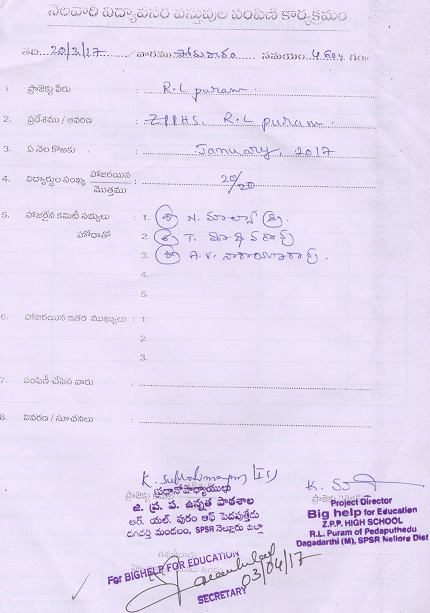 నెలవారి విద్యావసర వస్తువుల పంపిణీ కార్యక్రమం
తేది. 20/3/17 / వారము సోమవారం సమయం: 4
1. ప్రాజెక్టు పేరు : R.L puram.
2. ప్రదేశము / ఆవరణ : ZPPHS. R.L puram.
3. ఏ నెల కొఱకు : January, 2017
4. విద్యార్ధుల సంఖ్య హాజరయిన / మొత్తము : 20/20
5. హాజరైన కమిటీ సభ్యులు : 1. శ్రీ N.
హోదాతో 2. శ్రీ T.
3. శ్రీ A.V. నారాయణరావు.
4.
5.
6. హాజరయిన ఇతర ముఖ్యులు : 1.
2.
3.
7. పంపిణీ చేసిన వారు :
8. వివరణ / సూచనలు :
ప్రధానోపాధ్యాయులు
జి. ప్ర. ప. ఉన్నత పాఠశాల
ఆర్. యల్. పురం ఆఫ్ పెదపుత్తేడు
దగదర్తి మండలం, SPSR నెల్లూరు జిల్లా
Project Director
Big help for Education
Z.P.P. HIGH SCHOOL
R.L. Puram of Pedaputhedu
Dagadarthi (M), SPSR Nellore Dist
For BIGHELP FOR EDUCATION
03/04/17
SECRETARY